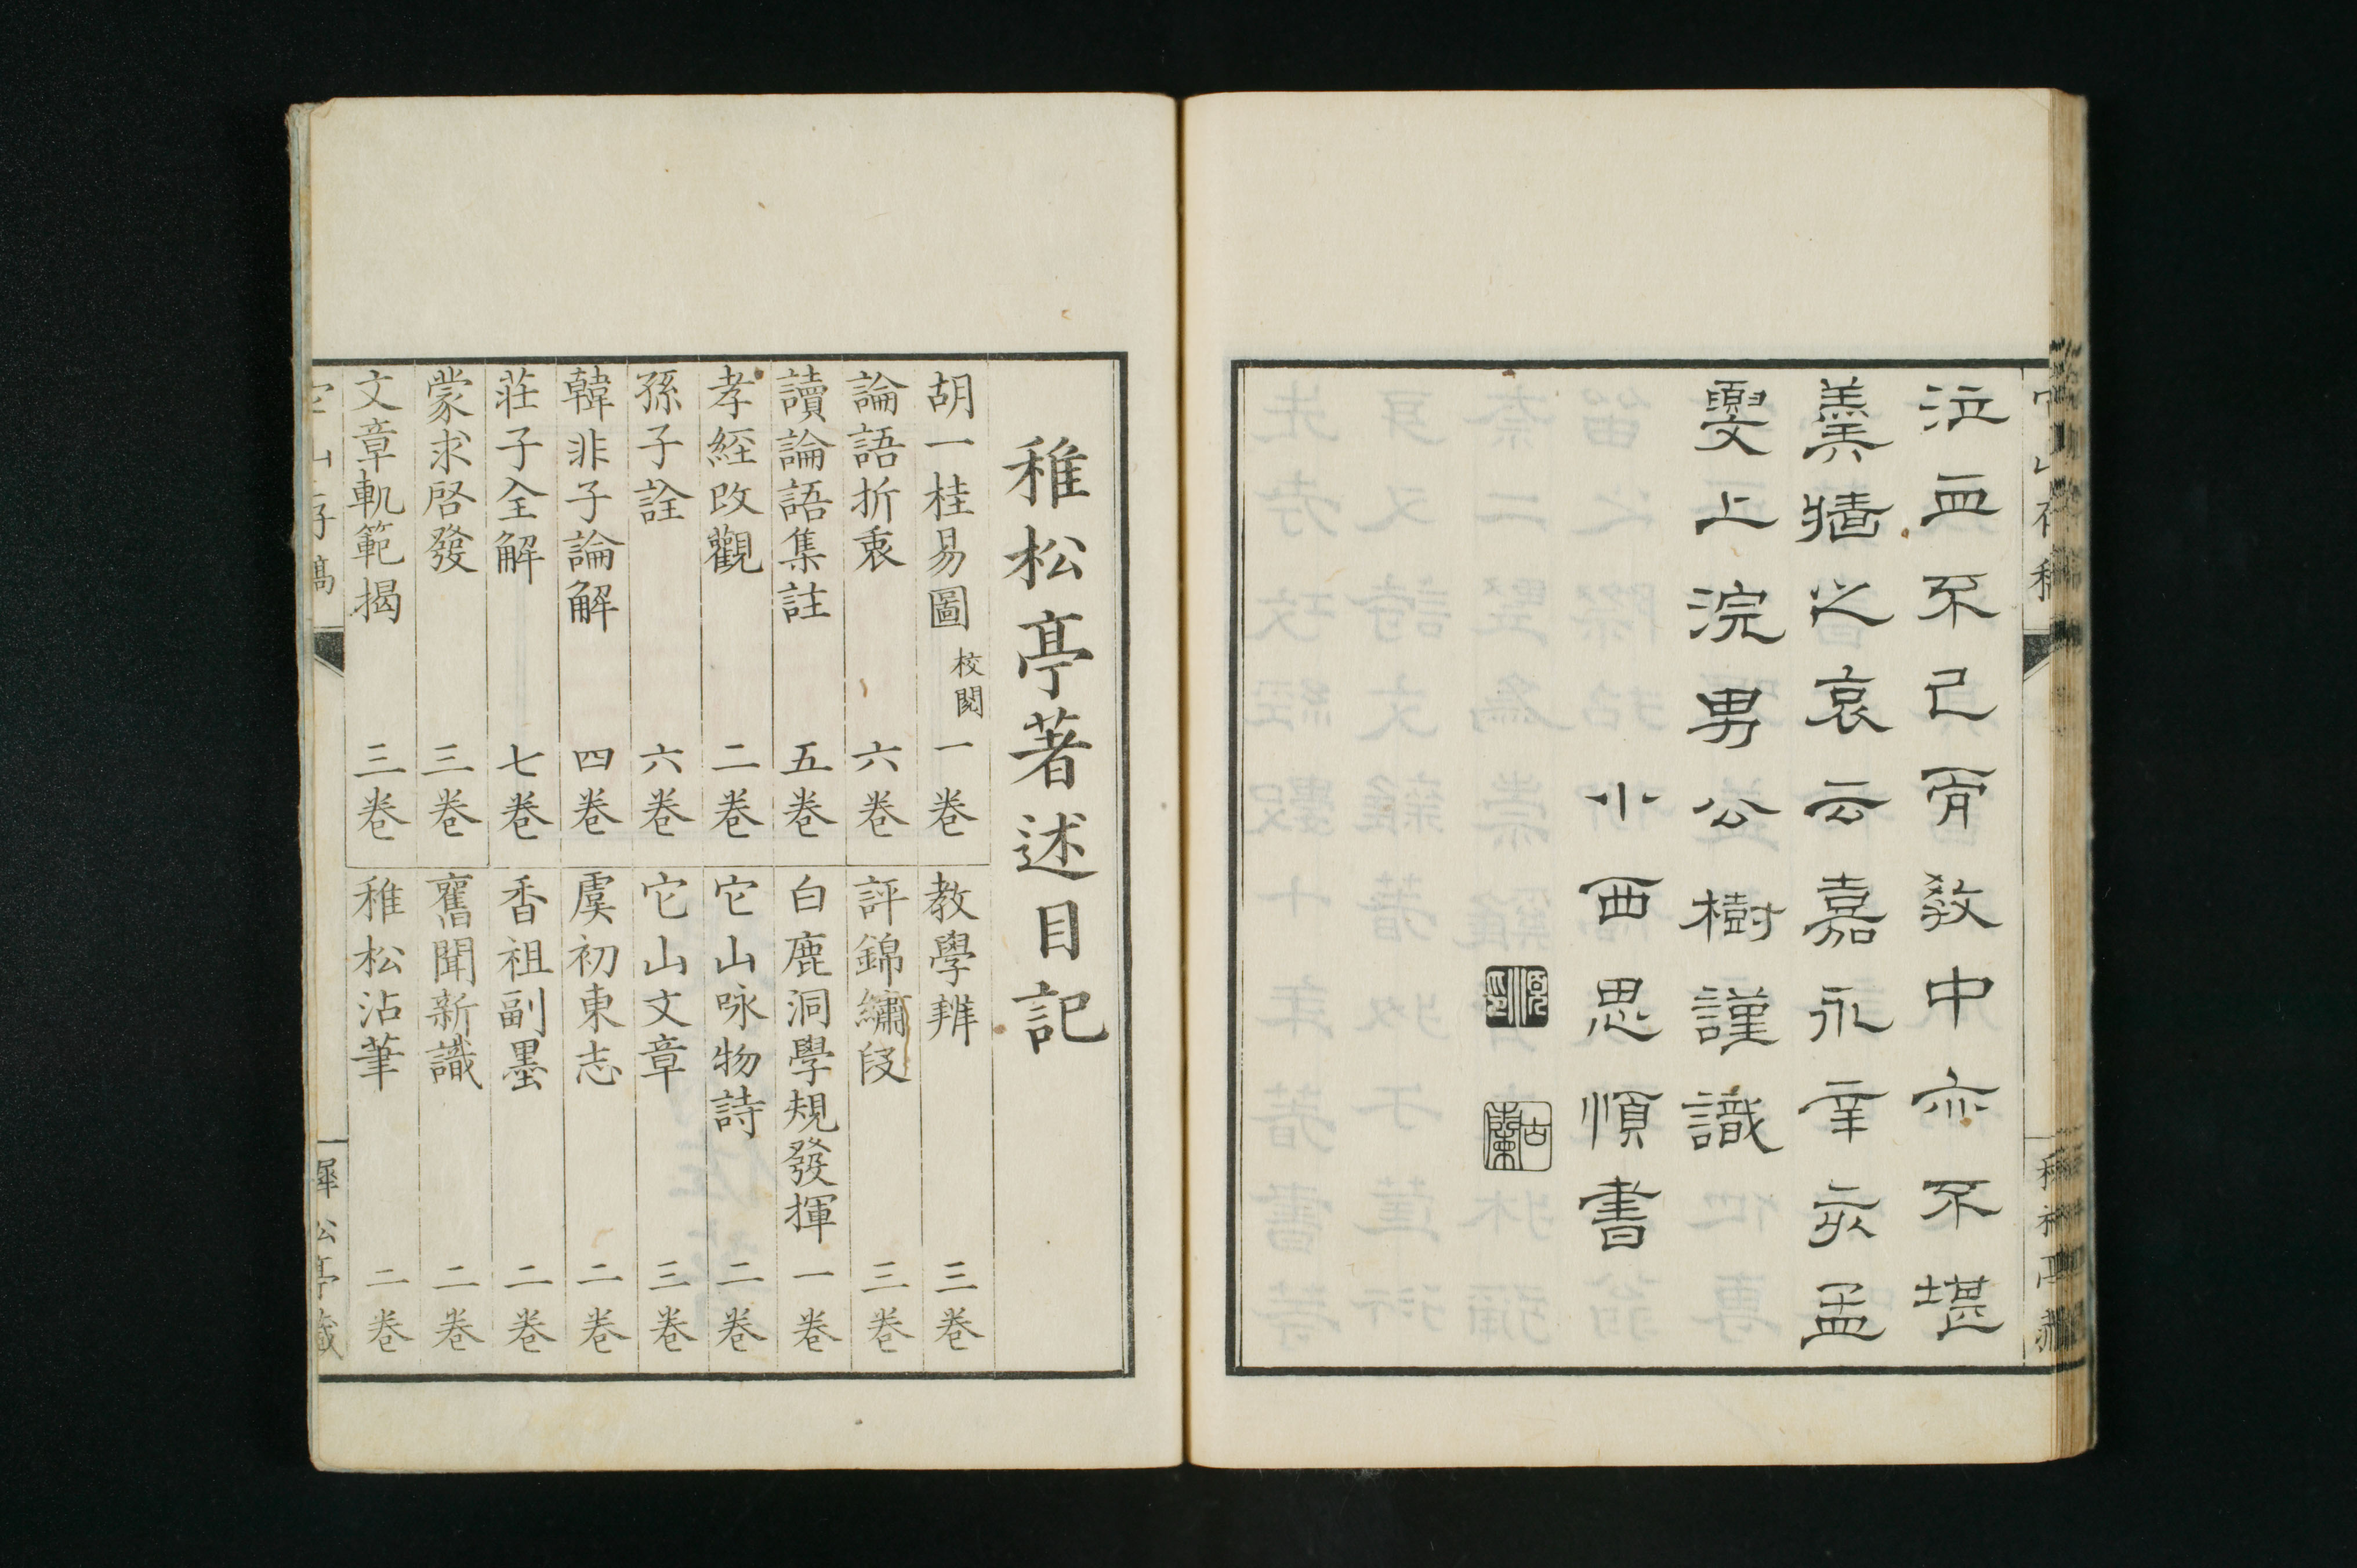 泣血不已胥教中亦不堪
羹牆之哀云嘉永辛亥孟
夏上浣男公樹謹識
小西思順書
稚松亭著述目記
胡一桂易圖 校閲 一卷
教學辨 三卷
論語折衷 六卷
評錦繡段 三卷
讀論語集註 五卷
白鹿洞學規發揮 一卷
孝經改觀 二卷
它山咏物詩 二卷
孫子詮 六卷
它山文章 三卷
韓非子論解 四卷
虞初東志 二卷
莊子全解 七卷
香祖副墨 二卷
蒙求啓發 三卷
舊聞新識 二卷
文章軌範揭 三卷
稚松沾筆 二卷